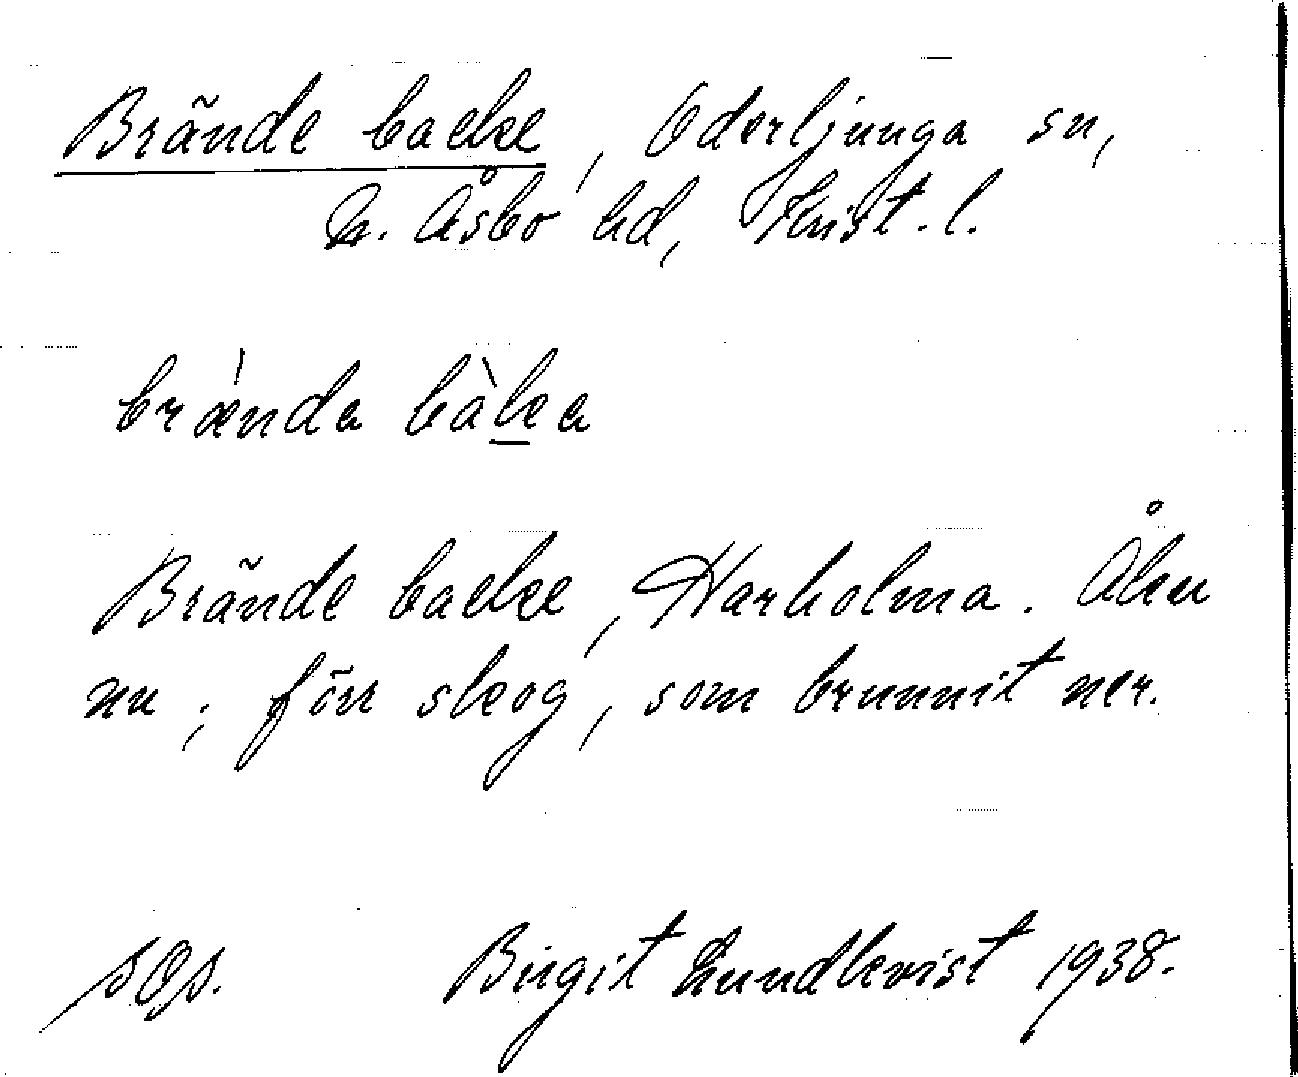 Brände backe, Oderljunga sn,
N. Åsbo hd, Krist. l.
brænda bàka
Brände backe, Harholma. Åker
nu; förr skog, som brunnit ner.
sgs. Birgit Lundkvist 1938.